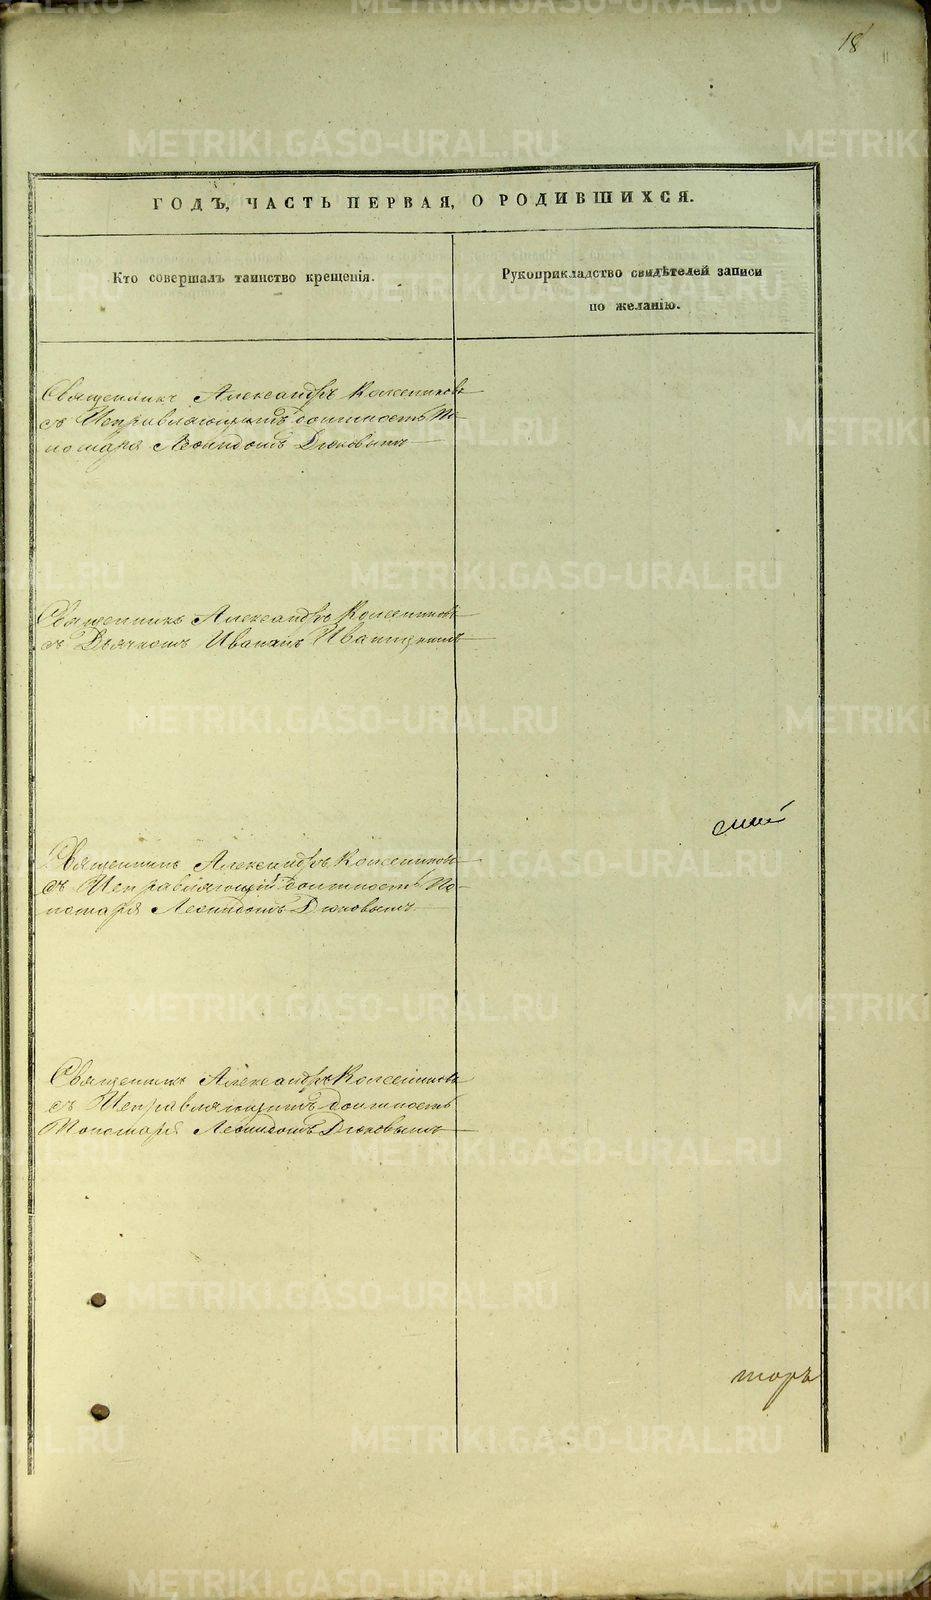 18
ГОДЪ, ЧАСТЬ ПЕРВАЯ, О РОДИВШИХСЯ.
Кто совершалъ таинство крещенія.
Рукоприкладство свидѣтелей записи
по желанію.
Священникъ Александръ Колесниковъ
съ Исправляющимъ должность По-
номаря Леонидомъ Дюковымъ
Священникъ Александръ Колесниковъ
съ Дьячкомъ Иваномъ
смой
Священникъ Александръ Колесниковъ
съ Исправляющій должность По-
номаря Леонидомъ Дюковымъ
Священникъ Александръ Колесниковъ
съ Исправляющимъ должность
Пономаря Леонидомъ Дюковымъ
торъ
METRIKI.GASO-URAL.RU